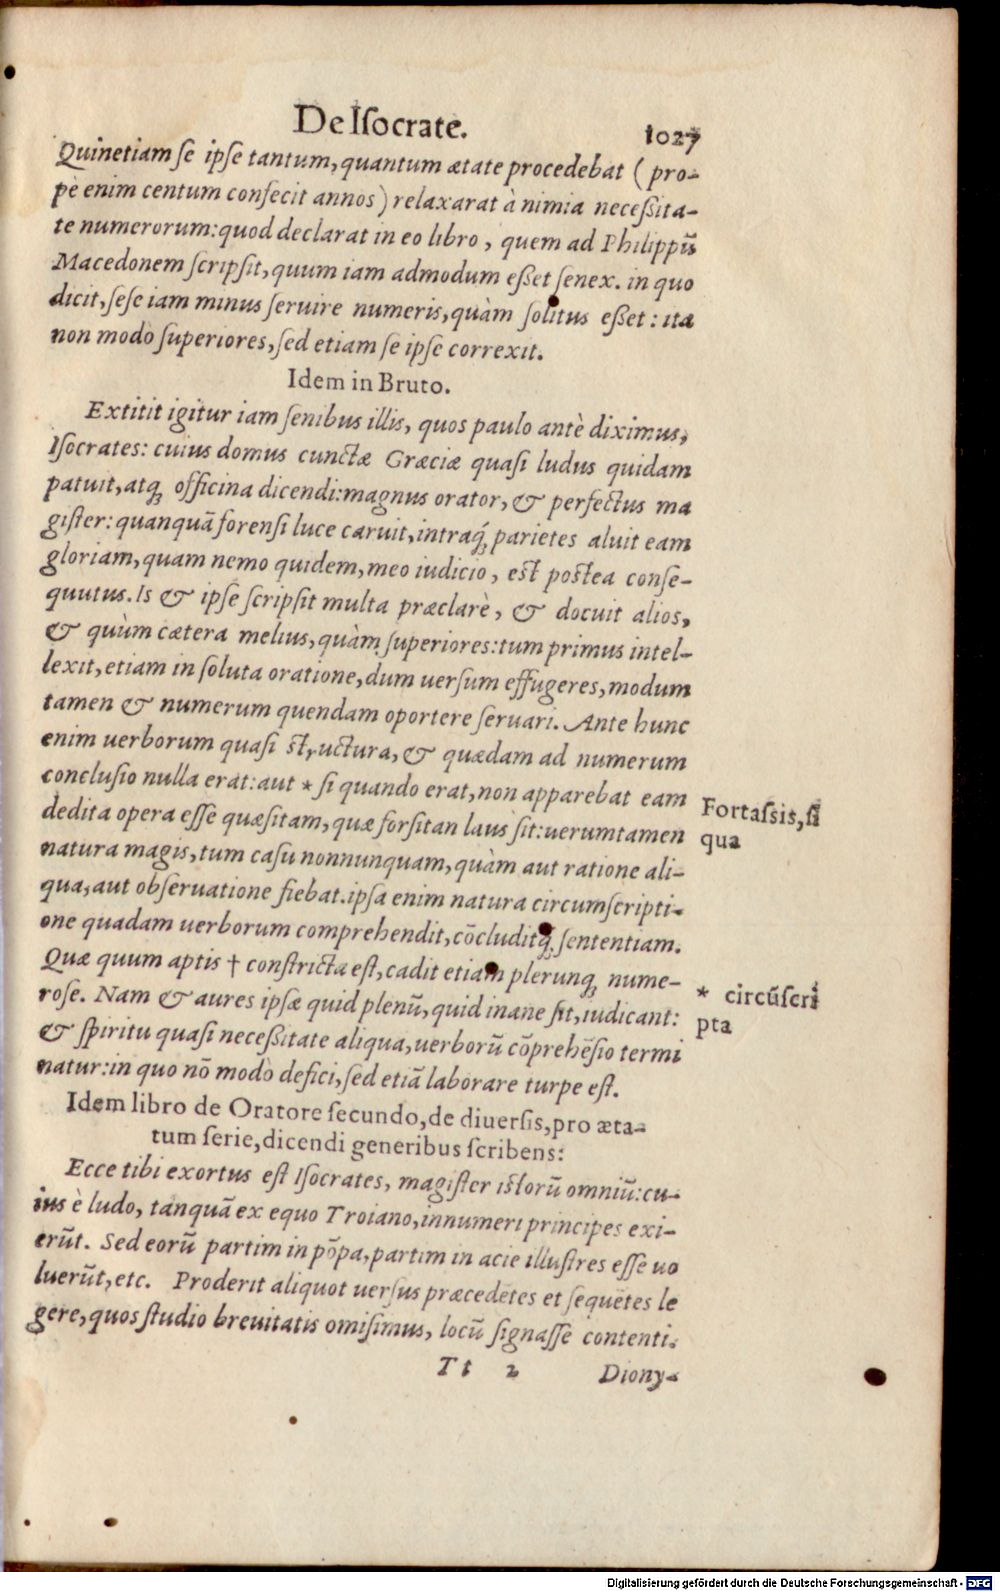 De Iſocrate. 1027
Quinetiam ſe ipſe tantum, quantum ætate procedebat (pro-
pè enim centum confecit annos) relaxarat à nimia neceßita-
te numerorum: quod declarat in eo libro, quem ad Philippū
Macedonem ſcripſit, quum iam admodum eßet ſenex. in quo
dicit, ſeſe iam minus ſeruire numeris, quàm ſolitus eßet: ita
non modò ſuperiores, ſed etiam ſe ipſe correxit.
Idem in Bruto.
Extitit igitur iam ſenibus illis, quos paulo antè diximus,
Iſocrates: cuius domus cunctæ Græciæ quaſi ludus quidam
patuit, atq́; officina dicendi: magnus orator, & perfectus ma
giſter: quanquā forenſi luce caruit, intraq́; parietes aluit eam
gloriam, quam nemo quidem, meo iudicio, eſt poſtea conſe-
quutus. Is & ipſe ſcripſit multa præclarè, & docuit alios,
& quùm cætera melius, quàm ſuperiores: tum primus intel-
lexit, etiam in ſoluta oratione, dum uerſum effugeres, modum
tamen & numerum quendam oportere ſeruari. Ante hunc
enim uerborum quaſi ſtructura, & quædam ad numerum
concluſio nulla erat: aut * ſi quando erat, non apparebat eam
Fortaſsis, ſi
qua
dedita opera eſſe quæſitam, quæ forſitan laus ſit: uerumtamen
natura magis, tum caſu nonnunquam, quàm aut ratione ali-
qua, aut obſeruatione fiebat. ipſa enim natura circumſcripti-
one quadam uerborum comprehendit, cōcluditq́; ſententiam.
Quæ quum aptis † conſtricta eſt, cadit etiam plerunq; nume-
* circūſcri
pta
roſe. Nam & aures ipſæ quid plenū, quid inane ſit, iudicant:
& ſpiritu quaſi neceßitate aliqua, uerborū cōprehēſio termi
natur: in quo nō modò defici, ſed etiā laborare turpe eſt.
Idem libro de Oratore ſecundo, de diuerſis, pro æta-
tum ſerie, dicendi generibus ſcribens:
Ecce tibi exortus eſt Iſocrates, magiſter iſtorū omniū: cu-
ius è ludo, tanquā ex equo Troiano, innumeri principes exi-
erūt. Sed eorū partim in pōpa, partim in acie illuſtres eſſe uo
luerūt, etc. Proderit aliquot uerſus præcedētes et ſequētes le
gere, quos ſtudio breuitatis omiſimus, locū ſignaſſe contenti.
Tt 2 Diony-
Digitalisierung gefördert durch die Deutsche Forschungsgemeinschaft - DFG